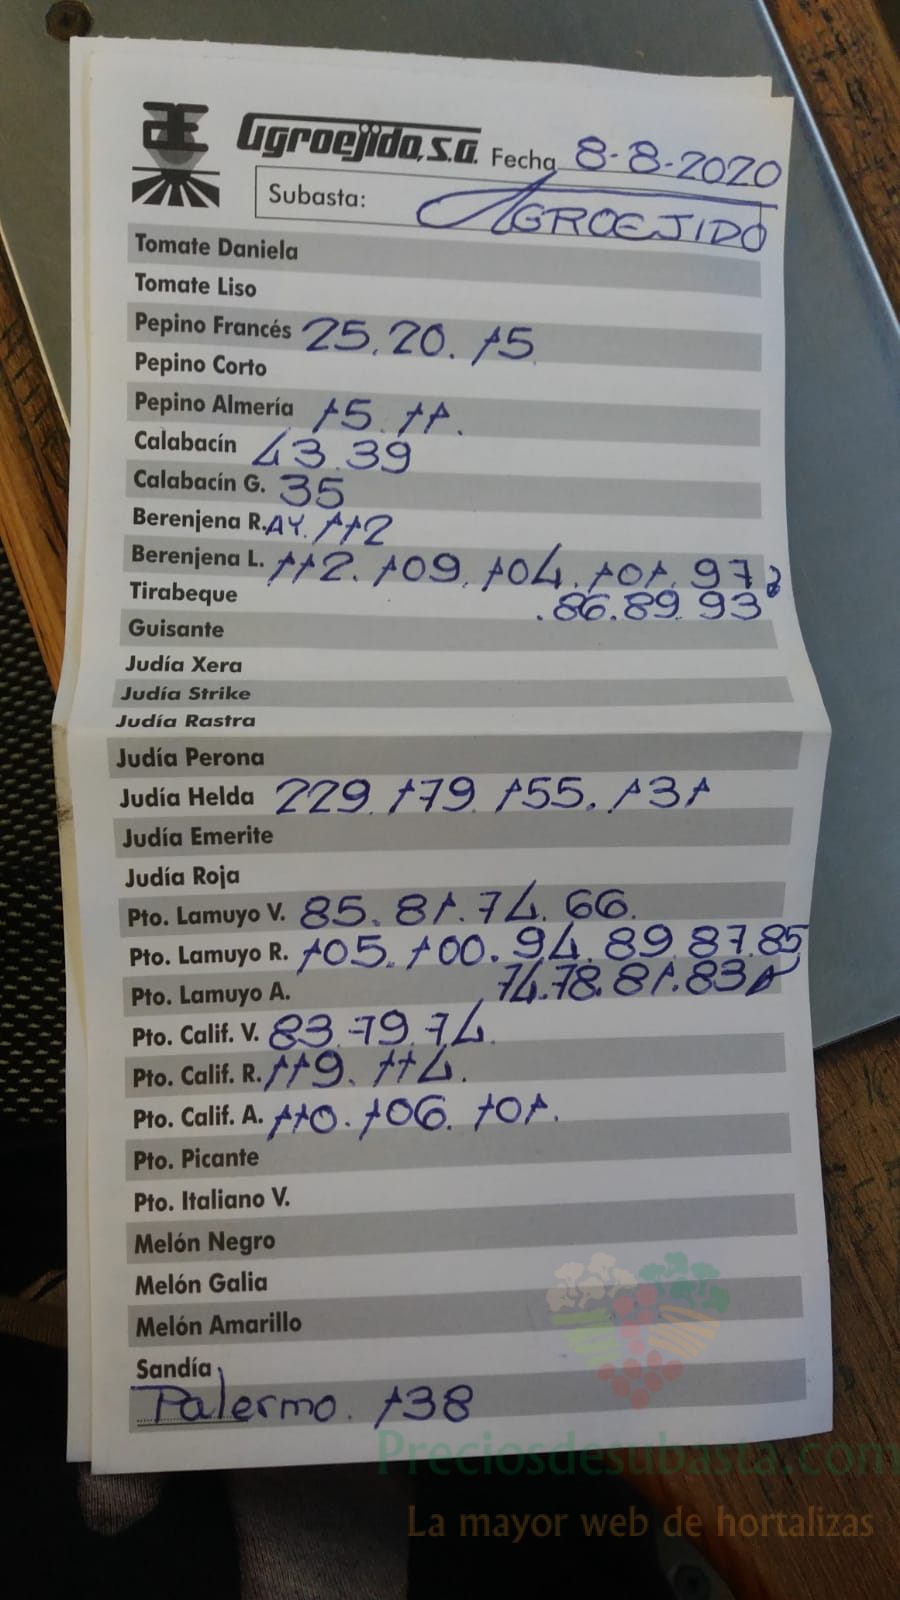 Agroejido, S.A. Fecha 8-8-2020
Subasta: AGROEJIDO
Tomate Daniela
Tomate Liso
Pepino Francés 25. 20. 15
Pepino Corto
Pepino Almería 15. 11.
Calabacín 43. 39
Calabacín G. 35
Berenjena R.AY. 112
Berenjena L. 112. 109. 104. 101. 97
Tirabeque .86. 89. 93
Guisante
Judía Xera
Judía Strike
Judía Rastra
Judía Perona
Judía Helda 229. 179. 155. 131
Judía Emerite
Judía Roja
Pto. Lamuyo V. 85. 81. 74. 66.
Pto. Lamuyo R. 105. 100. 94. 89. 87. 85
Pto. Lamuyo A. 74. 78. 81. 83
Pto. Calif. V. 83. 79. 74.
Pto. Calif. R. 119. 114.
Pto. Calif. A. 110. 106. 101.
Pto. Picante
Pto. Italiano V.
Melón Negro
Melón Galia
Melón Amarillo
Sandía
Palermo. 138
Preciosdesubasta.com
La mayor web de hortalizas